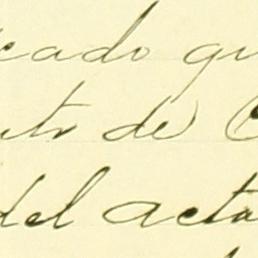 cado qu
nto de C
del acta